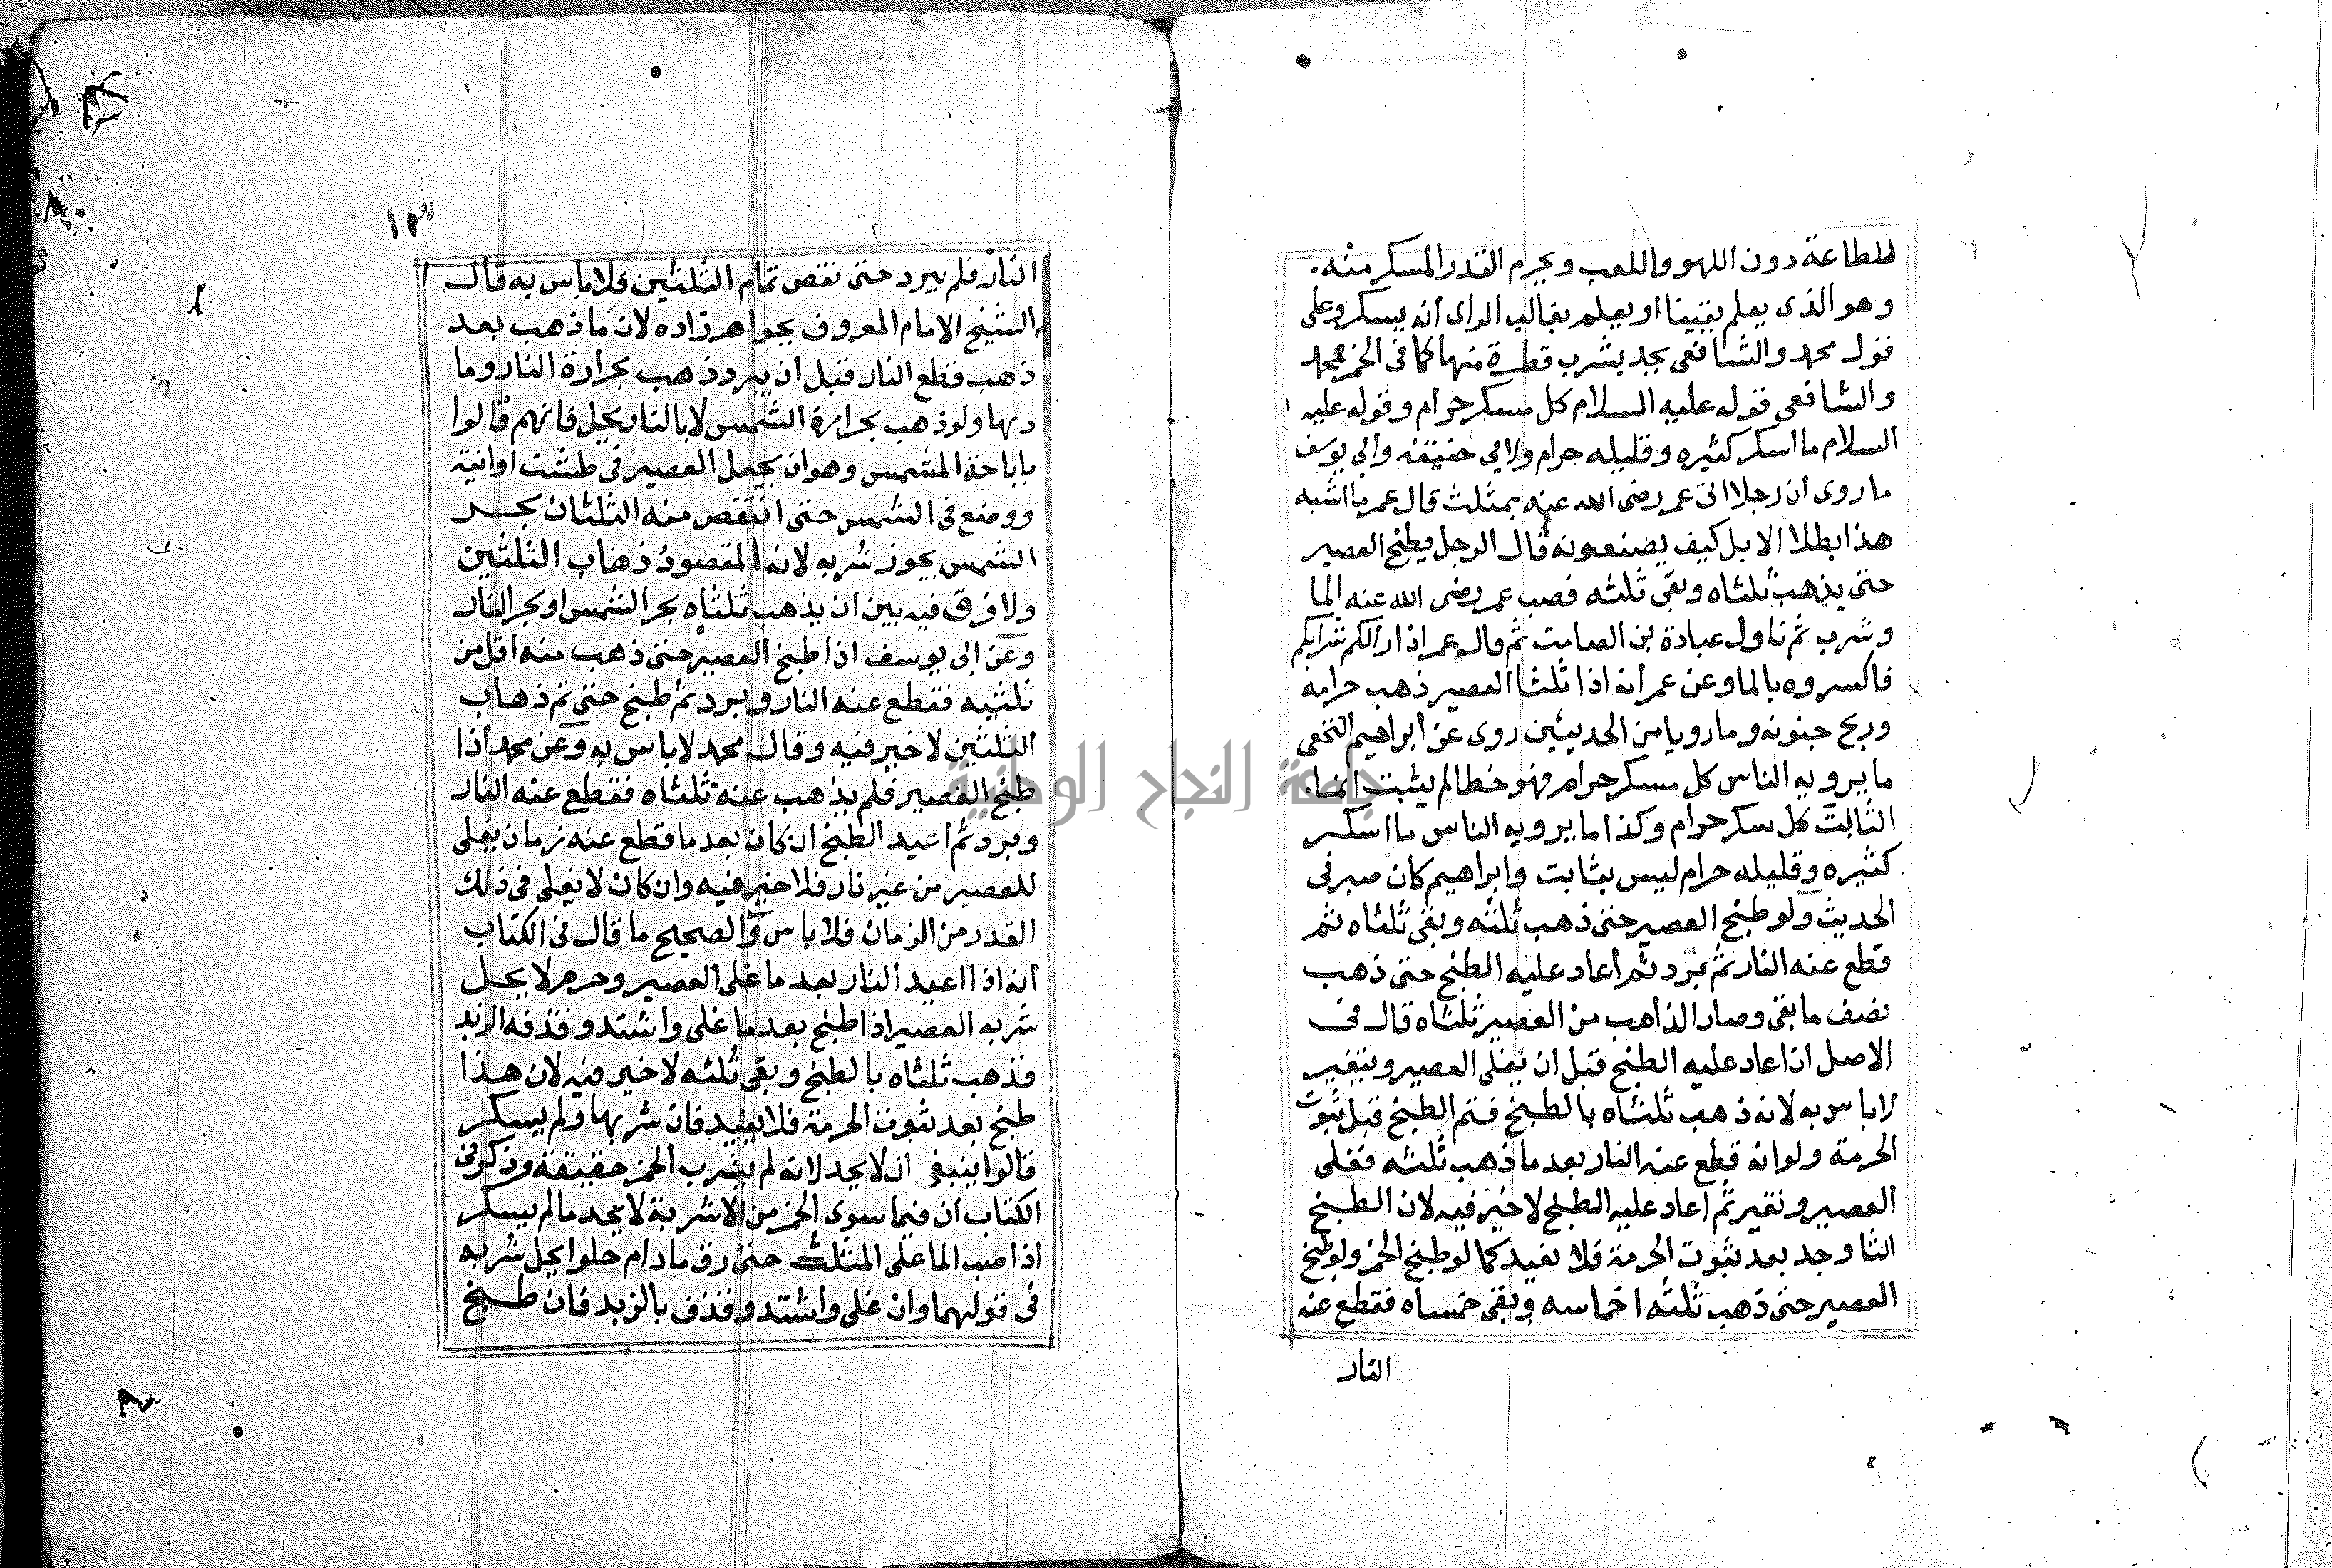 للطاعة دون اللهو واللعب ويحرم القدر المسكر منه.
وهو الذى يعلم يقينا او يعلم بغالب الراى انه يسكر وعلى
قول محمد والشافعى يحد بشرب قطرة منها كما فى الخمر لمحمد
والشافعى قوله عليه السلام كل مسكر حرام وقوله عليه
السلام ما اسكر كثيره وقليله حرام ولابي حنيفة وابي يوسف
ما روى ان رجلا اتى عمر رضى الله عنه بمثلث قال عمر ما اشبه
هذا بطلا الابل كيف يصنعونه قال الرجل يطبخ العصير
حتى يذهب ثلثاه وبقى ثلثه فصب عمر رضى الله عنه الما
وشرب ثم ناول عبادة بن الصامت ثم قال عمر اذا رالكم شرابكم
فاكسروه بالما وعن عمر انه اذا ثلثا العصير ذهب حرامه
وريح جنونه وما رويا من الحديثين روى عن ابراهيم النخعى
ما يرويه الناس كل مسكر حرام فهو خطا لم يثبت انما
الثابت كل سكر حرام وكذا ما يرويه الناس ما اسكر
كثيره وقليله حرام ليس بثابت وابراهيم كان صبر فى
الحديث ولو طبخ العصير حتى ذهب ثلثه وبقى ثلثاه ثم
قطع عنه النار ثم برد ثم اعاد عليه الطبخ حتى ذهب
نصف ما بقى وصار الذاهب من العصير ثلثاه قال فى
الاصل اذا عاد عليه الطبخ قبل ان يغلى العصير ويتغير
لا باس به لانه ذهب ثلثاه بالطبخ فتم الطبخ قبل ثبوت
الحرمة ولو انه قطع عنه النار بعد ما ذهب ثلثه فغلى
العصير وتغير ثم اعاد عليه الطبخ لا خير فيه لان الطبخ
الثا وجد بعد ثبوت الحرمة فلا يفيد كما لو طبخ الخمر ولو طبخ
العصير حتى ذهب ثلثه اخماسه وبقى خمساه فقطع عنه
النار
١٣
النار فلم يبرد حتى نقص تمام الثلثين فلا باس به قال
الشيخ الامام المعروف بجواهر زاده لان ما ذهب بعد
ذهب فقطع النار قبل ان يبرد ذهب بحرارة النار وما
دبها ولو ذهب بحرارة الشمس لا بالنار يحل فانهم قالوا
باباحة المشمس وهو ان يجعل العصير فى طشت او انية
ووضع فى الشمس حتى انتقص منه الثلثان بحر
الشمس يجوز شربه لانه المقصود ذهاب الثلثين
ولا فرق فيه بين ان يذهب ثلثاه بحر الشمس او بحر النار
وعن ابى يوسف اذا طبخ العصير حتى ذهب منه اقل من
ثلثيه فقطع عنه النار وبرد ثم طبخ حتى تم ذهاب
الثلثين لا خير فيه وقال محمد لا باس به وعن محمد اذا
طبخ العصير فلم يذهب عنه ثلثاه فقطع عنه النار
وبرد ثم اعيد الطبخ ان كان بعد ما قطع عنه زمان يغلى
للعصير من غير نار فلا خير فيه وان كان لا يغلى فى ذلك
القدر من الزمان فلا باس والصحيح ما قال فى الكتاب
انه اذا اعيد النار بعد ما غلى العصير وحرم لا يحل
شربه العصير اذا طبخ بعد ما غلى واشتد وقذفه الزبد
فذهب ثلثاه بالطبخ وبقى ثلثه لا خير فيه لان هذا
طبخ بعد ثبوت الحرمة فلا يفيد فان شربها ولم يسكر
قالوا ينبغى ان لا يحد لانه لم يشرب الخمر حقيقة وذكر فى
الكتاب ان فيما سوى الخمر من الاشربة لا يحد ما لم يسكر
اذا صب الما على المثلث حتى رق ما دام حلوا يحل شربه
فى قولهما وان غلى واشتد وقذف بالزبد فان طبخ
جامعة النجاح الوطنية